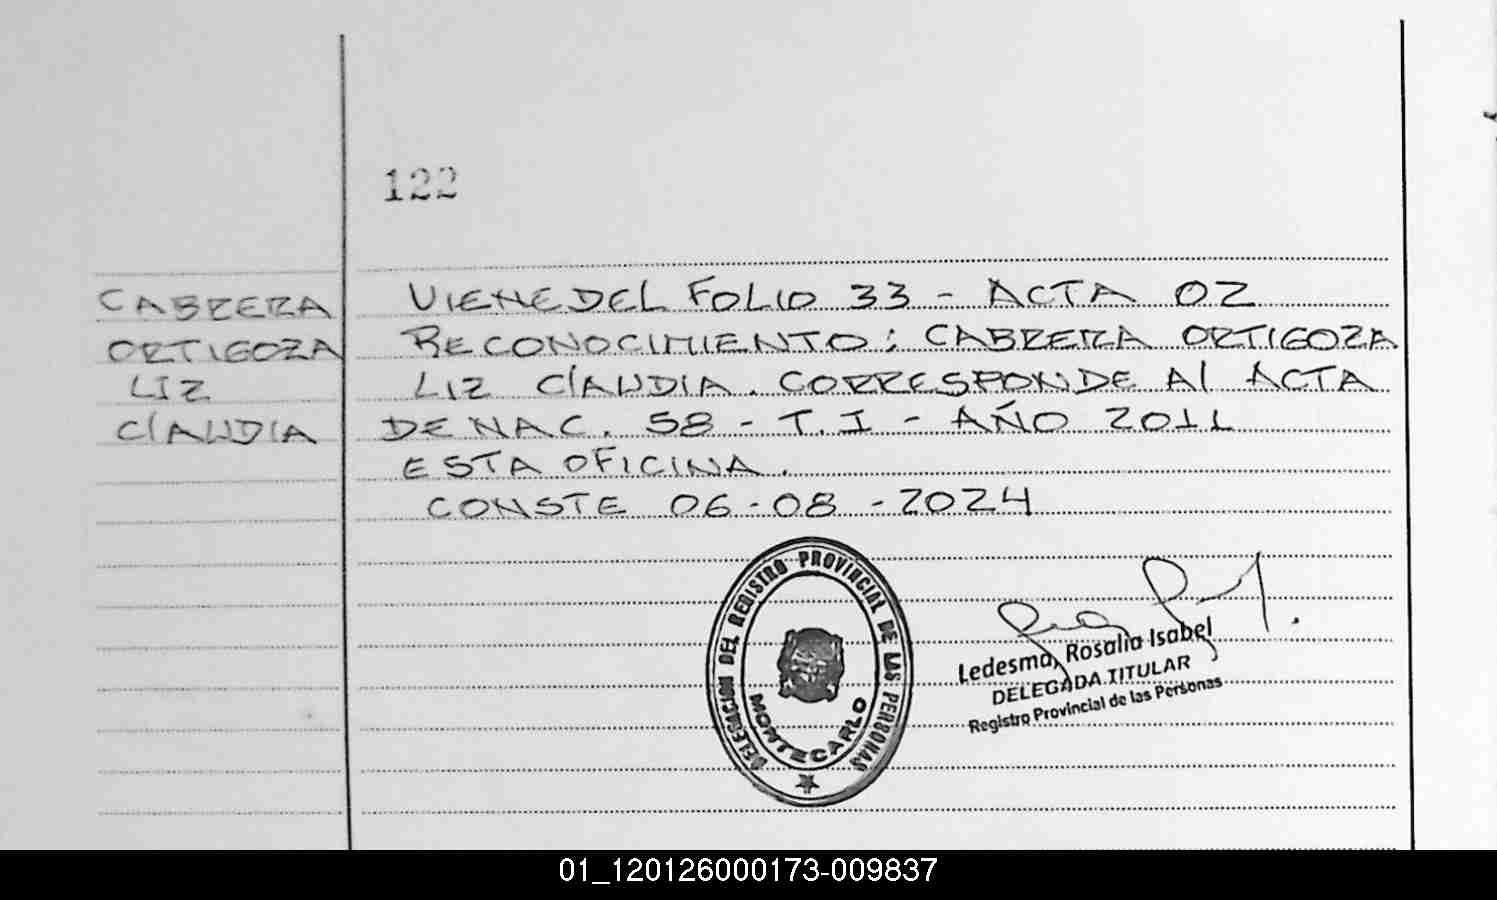 122
CABRERA
ORTIGOZA
LIZ
ClAUDIA
VIENE DEL FOLIO 33 - ACTA 02
RECONOCIMIENTO: CABRERA ORTIGOZA
LIZ ClAUDIA. CORRESPONDE Al ACTA
DE NAC. 58 - T.I - AÑO 2011
ESTA OFICINA.
CONSTE 06-08-2024
DELEGACION DEL REGISTRO PROVINCIAL DE LAS PERSONAS
MONTECARLO
Ledesma, Rosalia Isabel
DELEGADA TITULAR
Registro Provincial de las Personas
01_120126000173-009837